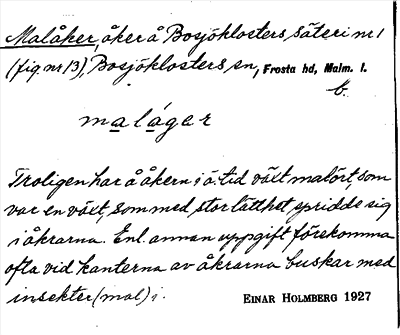 Malåker, åker å Bosjöklosters säteri nr 1
(fig. nr 13), Bosjöklosters sn, Frosta hd, Malm. l.
b.
malågar
Troligen har å åkern i ä. tid växt malört, som
var en växt, som med stor lätthet spridde sig
i åkrarna. Enl. annan uppgift förekomma
ofta vid kanterna av åkrarna buskar med
insekter (mal) i.
EINAR HOLMBERG 1927